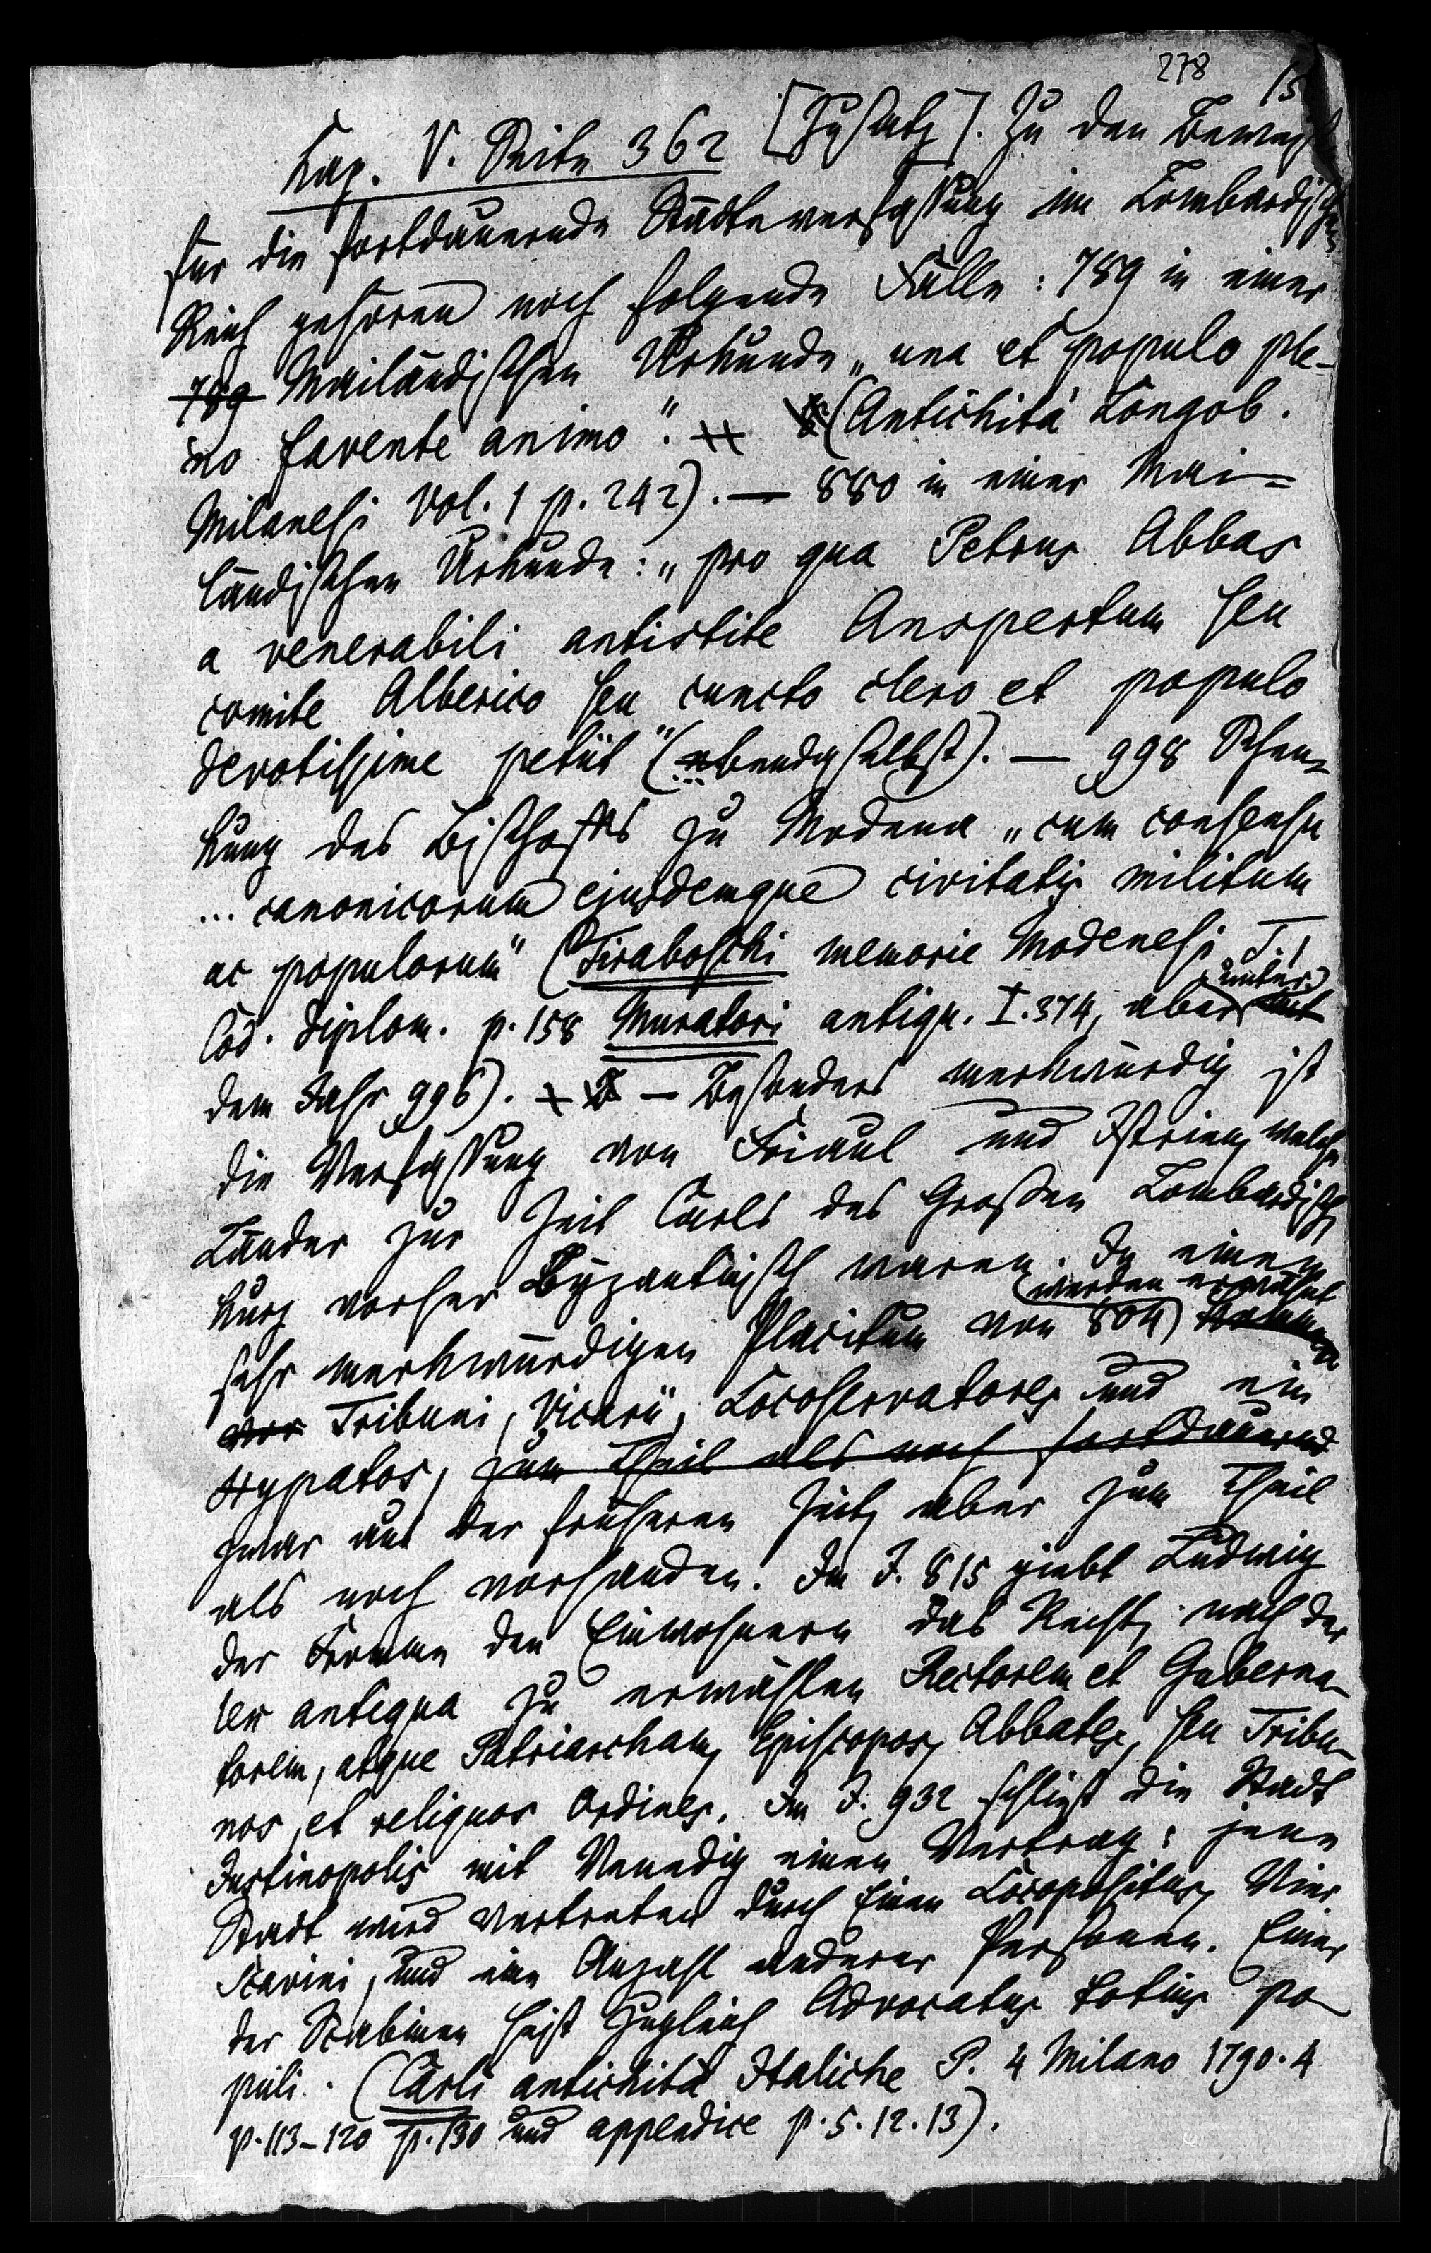 278
15
Kap. V. Seite 362 [Zusatz]. Zu den Beweis
für die fortdauernde Städteverfassung im Lombardischen
Reich gehören noch folgende Fälle: 789 in einer
789 Mailändischen Urkunde „una et populo ple-
no favente animo“. (Antichità Longob.
Milanesi Vol. 1 p. 242). — 880 in einer Mai-
ländischen Urkunde: „pro qua Petrus Abbas
a venerabili antistite Anspertum seu
comite Alberico seu cuncto clero et populo
devotissime petiit“ (ebendaselbst). — 998 Schen-
kung des Bischoffs zu Modena „cum consensu
... canonicorum ejusdemque civitatis militum
ac populorum“ (Tiraboschi memorie Modenesi T. 1
Cod. diplom. p. 158 Muratori antiqu. I. 374, aber mit
unter
dem Jahr 996). — Besonders merkwürdig ist
die Verfassung von Friaul und Istrien, welche
Länder zur Zeit Carls des Großen Lombardisch,
kurz vorher Byzantinisch waren. In einem
werden erwähnt
sehr merkwürdigen Placitum von 804 kommen
vor Tribuni, Vicarii, Locoservatores und ein
Hypatos, zum Theil als noch fortdauernd
zwar aus der früheren Zeit, aber zum Theil
als noch vorhanden. Im J. 815 giebt Ludwig
der Fromme den Einwohnern das Recht, nach der
lex antiqua zu erwählen Rectorem et Guberna-
torem, atque Patriarcham, Episcopos, Abbates, seu Tribu-
nos, et reliquos Ordines. Im J. 932 schließt die Stadt
Justinopolis mit Venedig einen Vertrag: jene
Stadt wird vertreten durch Einen Locopositus, Vier
Scavini, und eine Anzahl anderer Personen. Einer
der Scabinen heißt zugleich Advocatus totius po-
puli. (Carli antichità Italiche P. 4 Milano 1790. 4
p. 113–120 p. 130 und appendice p. 5. 12. 13).